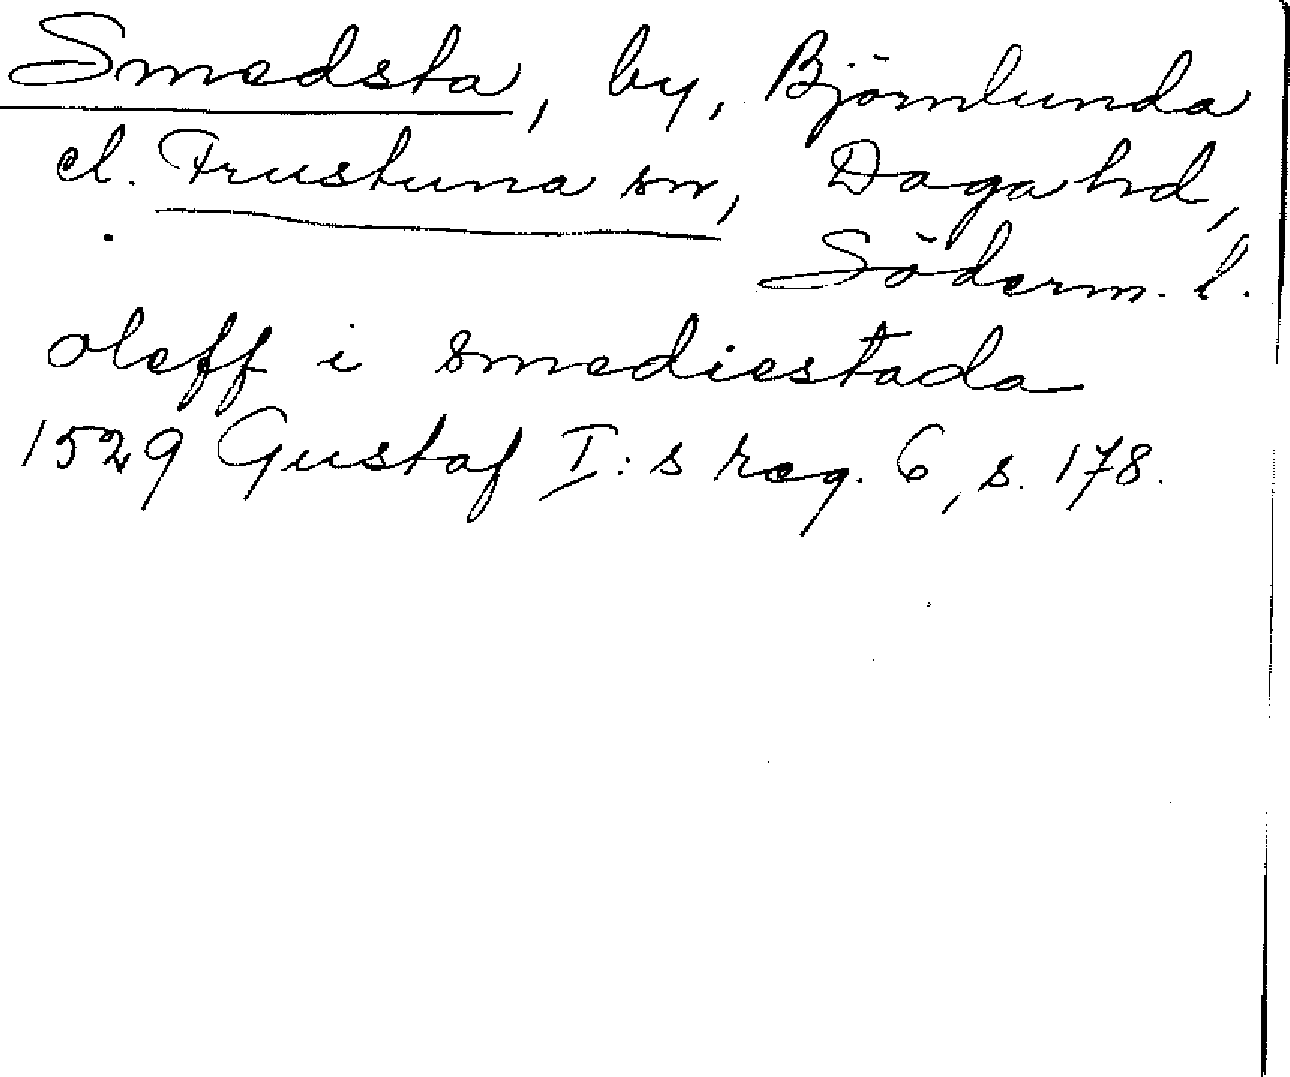 Smedsta, by, Björnlunda
el. Frustuna sn, Daga hd,
Söderm. l.
oleff i smediestada
1529 Gustaf I:s reg. 6, s. 178.